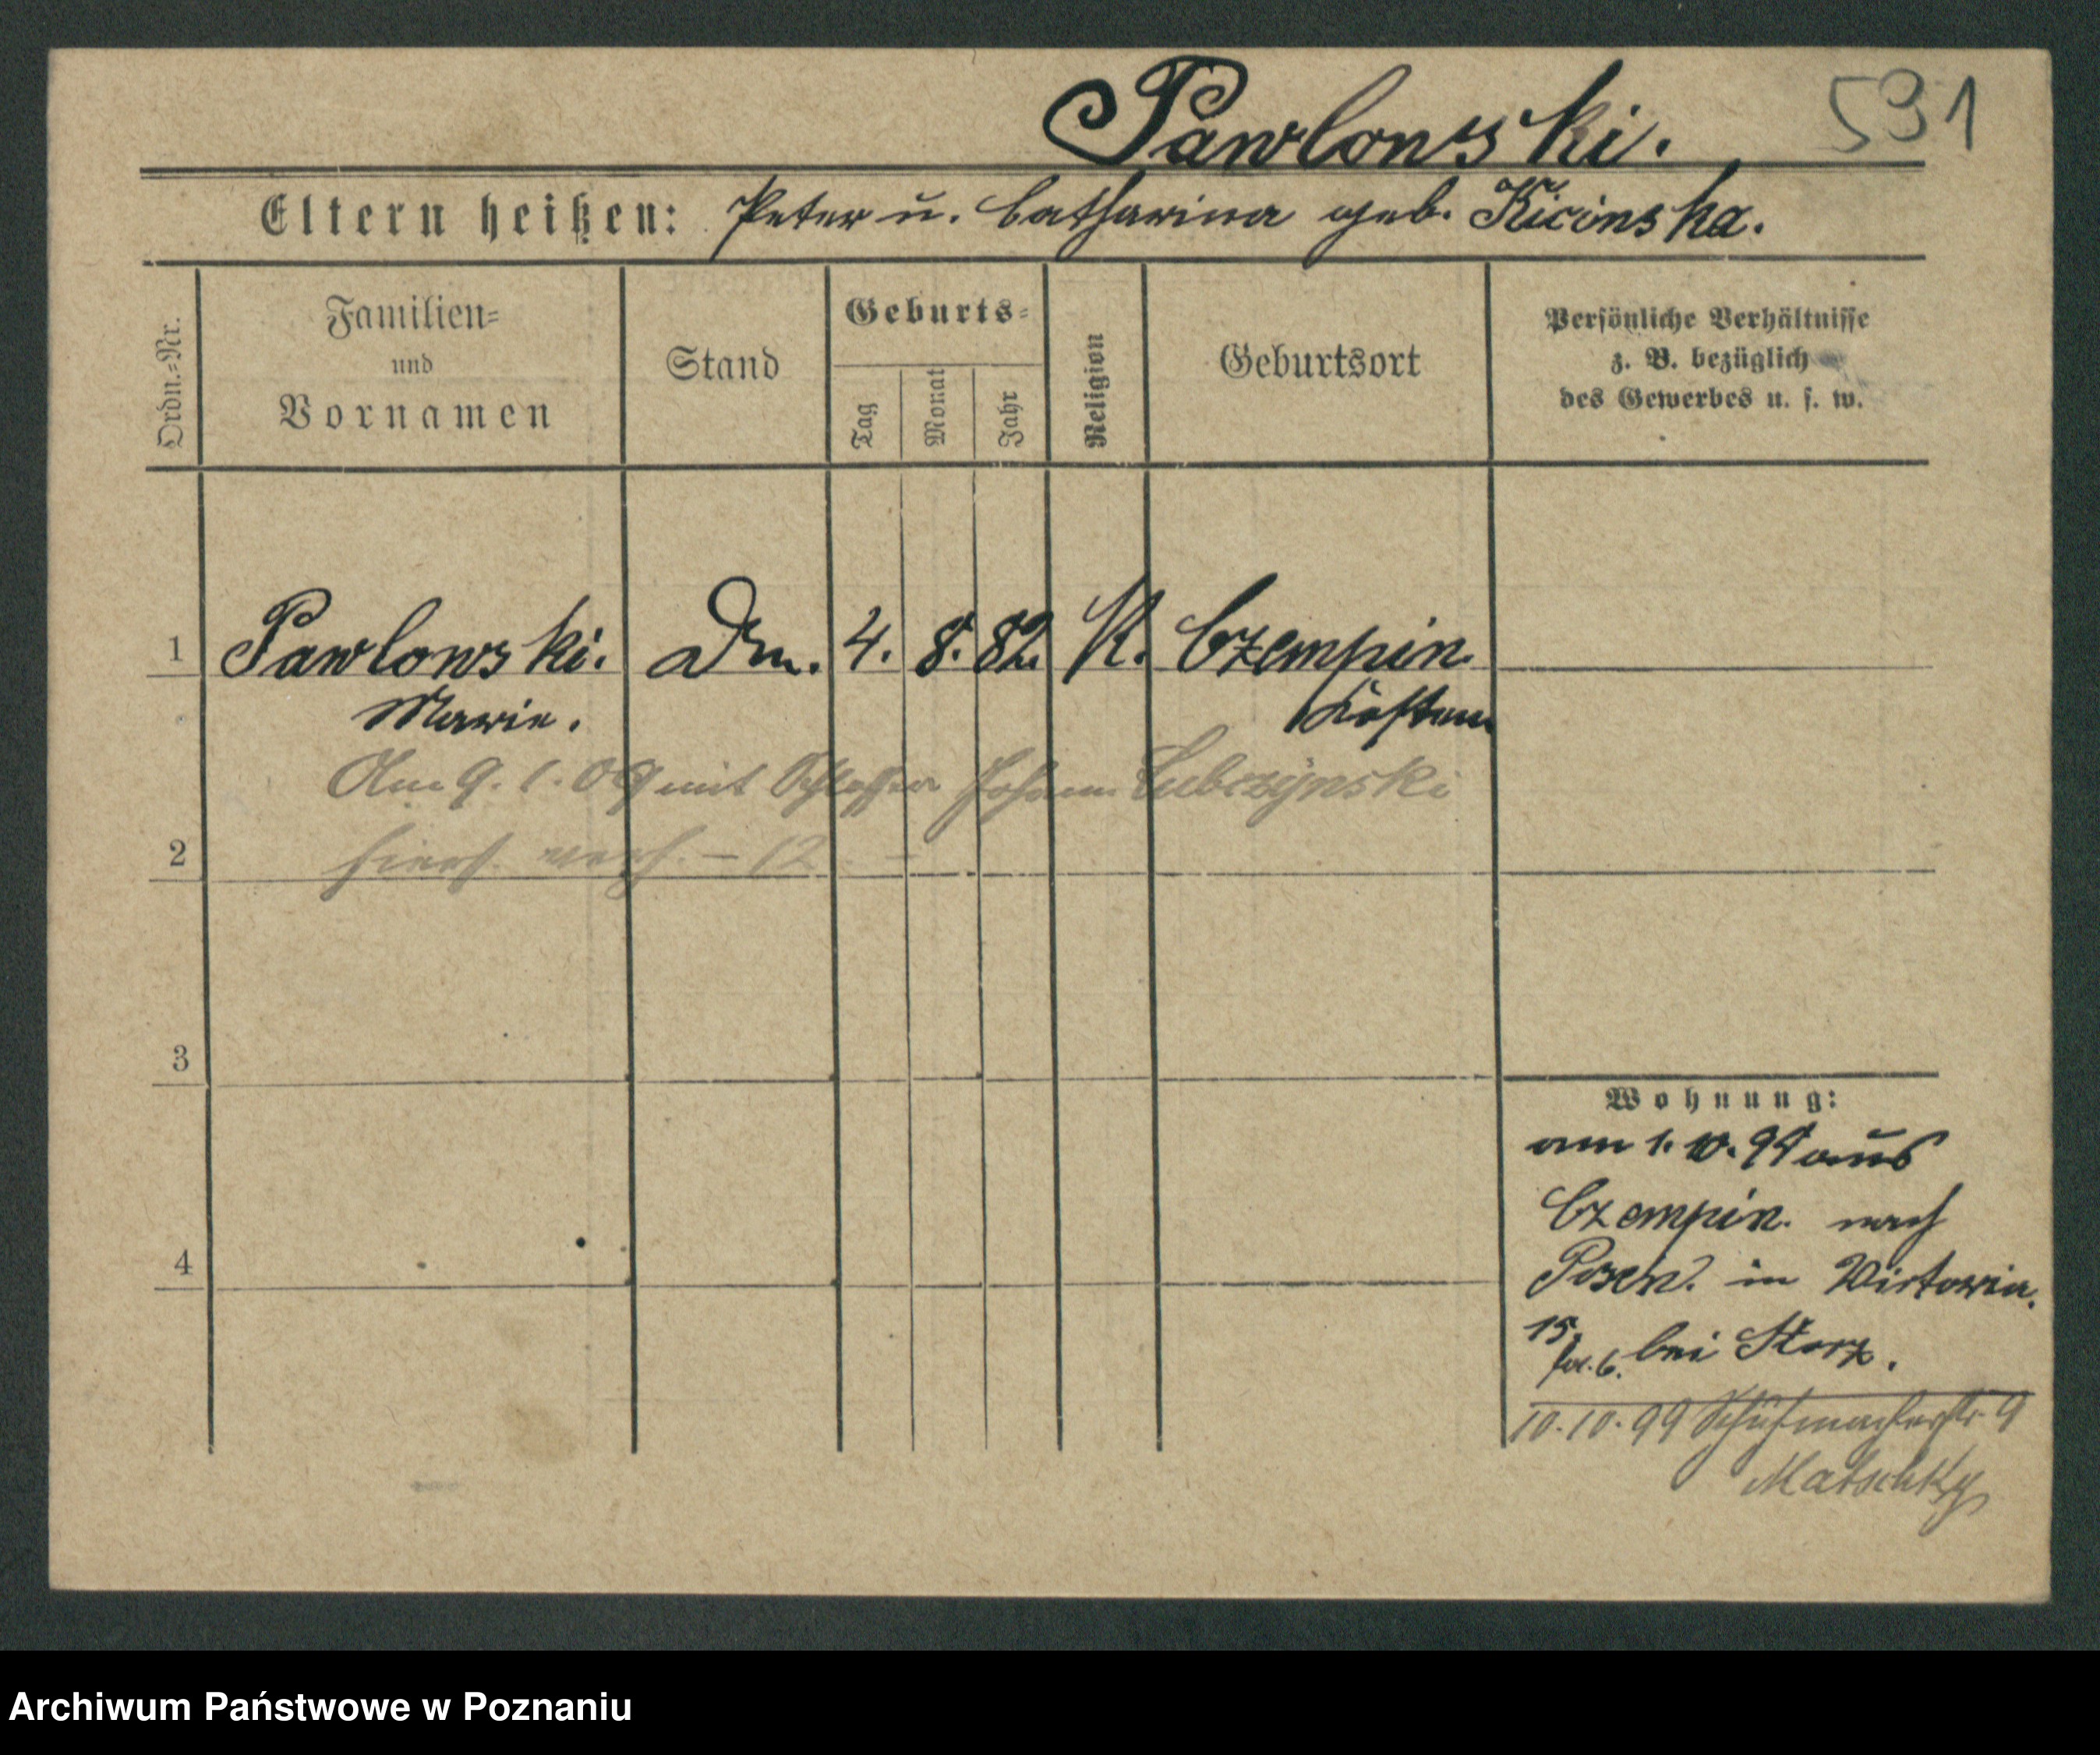 Pawlowski. 591
Eltern heißen: Peter u. Catharina geb. Kicinska.
Ordn.-Nr.
Familien-
und
Vornamen
Stand
Geburts-
Tag
Monat
Jahr
Religion
Geburtsort
Persönliche Verhältnisse
z. B. bezüglich
des Gewerbes u. s. w.
1 Pawlowski. Dm. 4. 8. 82. K. Czempin.
Marie. Kosten
Am 9. 1. 09 mit Schlosser Johann Lubczynski
2 hiers. verh. – 12
3
4
Wohnung:
am 1. 10. 99 aus
Czempin. nach
Posen. in Victoria.
15. bei Storz.
10.10.99 Schuhmacherstr. 9
Matschky
Archiwum Państwowe w Poznaniu